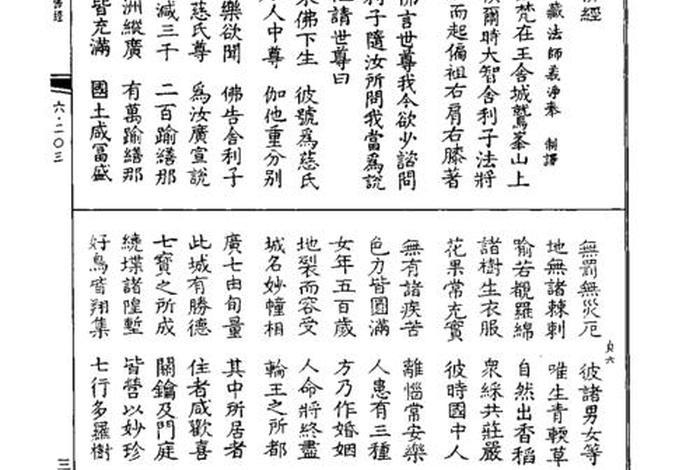 經
藏法師義淨奉　制譯
梵在王舍城鷲峯山上
爾時大智舍利子法將
而起偏袒右肩右膝著
佛言世尊我今欲少諮問
利子隨汝所問我當爲說
請世尊曰
佛下生　彼號爲慈氏
人中尊　伽他重分別
樂欲聞　佛告舍利子
慈氏尊　爲汝廣宣說
減三千　二百踰繕那
洲縱廣　有萬踰繕那
皆充滿　國土咸富盛
六·二〇三
無罰無災厄　彼諸男女等
地無諸棘刺　唯生青輭草
喻若覩羅綿　自然出香稻
諸樹生衣服　衆綵共莊嚴
花果常充實　彼時國中人
無有諸疾苦　離惱常安樂
色力皆圓滿　人患有三種
女年五百歲　方乃作婚姻
地裂而容受　人命將終盡
城名妙幢相　輪王之所都
廣七由旬量　其中所居者
此城有勝德　住者咸歡喜
七寶之所成　關鑰及門庭
繞堞諸隍塹　皆營以妙珍
好鳥皆翔集　七行多羅樹
三